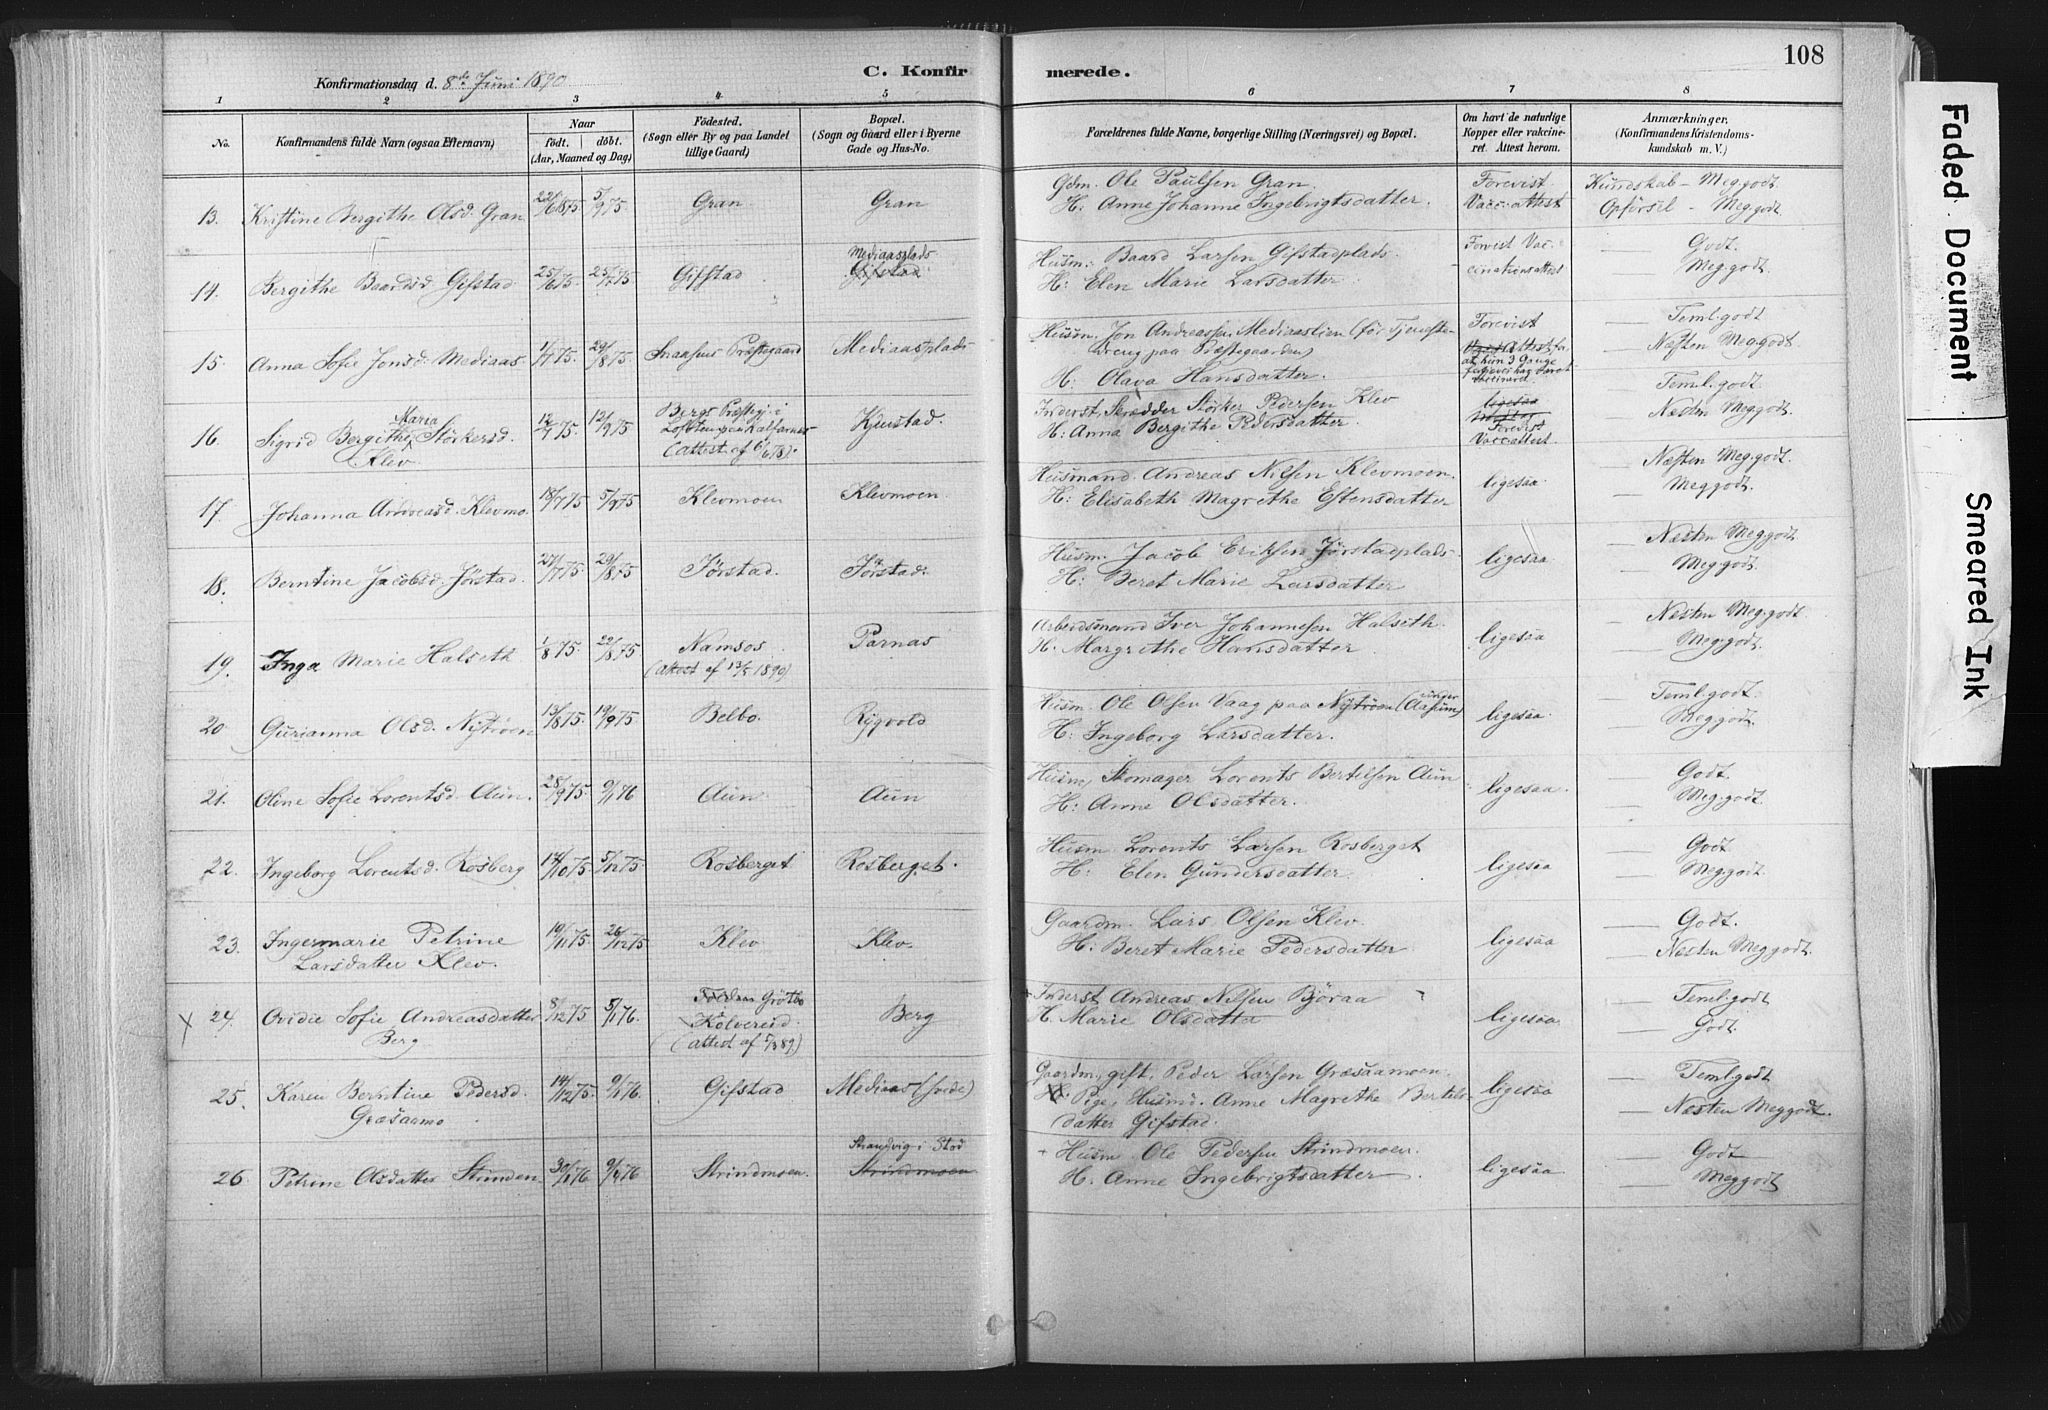 108
C. Konfirmerede.
Konfirmationsdag d. 8de Juni 1890
1 2 3 4 5 6 7 8
No. Konfirmandens fulde Navn (ogsaa Efternavn) Naar født. døbt. (Aar, Maaned og Dag) Fødested. (Sogn eller By og paa Landet tillige Gaard) Bopæl. (Sogn og Gaard eller i Byerne Gade og Hus-No. Forældrenes fulde Navne, borgerlige Stilling (Næringsvei) og Bopæl. Om havt de naturlige Kopper eller vakcineret. Attest herom. Anmærkninger. (Konfirmandens Kristendomskundskab m. V.)
13. Kristine Bergithe Olsd. Gran 22/6 1875 5/9 75 Gran Gran Gdm. Ole Paulsen Gran. Forevist Kundskab - Meg.godt.
H: Anne Johanne Ingebrigtsdatter. Vacc.attest Opførsel - Meg.godt.
14. Bergithe Baardsd. Gifstad 25/6 75 25/7 75 Gifstad Mediaasplads Gifstad Husm. Baard Larsen Gifstadplads. Forvist Vac- — Godt.
H: Elen Marie Larsdatter cinationsattest — Meg.godt.
15. Anna Sofie Jonsd. Mediaas 1/7 75 29/8 75 Snaasens Præstegaard Mediaasplads Husm. Jon Andreassen Mediaastien (før Tjeneste- Forevist — Teml.godt
dreng paa Præstegaarden) attest, — Næsten Meg.godt.
H: Olava Hansdatter. at hun 3 Gange
16. Sigrid Bergithe Maria Størkersd. Klev 12/7 75 12/9 75 Bergs Præstegj. i (Attest af 6/6 78). Kjenstad. Inderst, Skrædder Størker Pedersen Klev — Teml.godt.
H: Anna Bergithe Pedersdatter. Forevist Vacc.attest. — Næsten Meg.godt.
17. Johanna Andreasd. Klevmo. 18/7 75 5/9 75 Klevmoen Klevmoen. Husmand. Andreas Nilsen Klevmoen. ligesaa — Næsten Meg.godt.
H: Elisabeth Magrethe Estensdatter — Meg.godt.
18. Berntine Jacobsd. Jørstad. 27/7 75 29/8 75 Jørstad. Jørstad. Husm. Jacob Eriksen Jørstadplads. ligesaa — Næsten Meg.godt
H: Beret Marie Larsdatter — Meg.godt.
19. Inga Marie Halseth 1/8 75 22/8 75 Namsos (Attest af 13/5 1890) Parnas Arbeidsmand Iver Johannesen Halseth. ligesaa — Næsten Meg.godt.
H. Margrethe Hansdatter. — Meg.godt.
20 Gurianna Olsd. Nytrøen 13/8 75 19/9 75 Belbo. Rygvold Husm. Ole Olsen Vaag paa Nytrøen ligesaa — Teml.godt.
H: Ingeborg Larsdatter. — Meg.godt.
21. Oline Sofie Lorentsd. Aun. 28/9 75 9/1 76 Aun Aun Husm, Skomager Lorents Bertelsen Aun ligesaa — Godt.
H: Anne Olsdatter. — Meg.godt.
22. Ingeborg Lorentsd. Rosberg 14/10 75 5/12 75 Rosberget Rosberget. Husm. Lorents Larsen Rosberget ligesaa — Godt
H: Elen Gundersdatter — Meg.godt.
23. Ingermarie Petrine Larsdatter Klev. 19/11 75 26/12 75 Klev Klev. Gaardm. Lars Olsen Klev. ligesaa — Godt.
H: Beret Marie Pedersdatter — Næsten Meg.godt.
24. Ovidie Sofie Andreasdatter Berg 8/12 75 5/1 76. Kolvereid (Attest af 5/3 89) Berg Inderst Andreas Nilsen Bjøraa ligesaa — Teml.godt
H. Marie Olsdatter — Godt.
25. Karen Berntine Pedersd. Græsaamo 14/12 75 9/1 76. Gifstad Mediaas (hvide) Gaardm, gift, Peder Larsen Græsaamoen. ligesaa — Teml.godt
Pige, Husmd. Anne Magrethe Bertels- — Næsten Meggodt.
datter Gifstad.
26 Petrine Olsdatter Strinden 30/1 76 9/4 76 Strindmoen. Strandvig i Stod Strindmoen + Husm Ole Pedersen Strindmoen. ligesaa — Godt
H. Anne Ingebrigtsdatter — Meg.godt
Faded Document
Smeared Ink